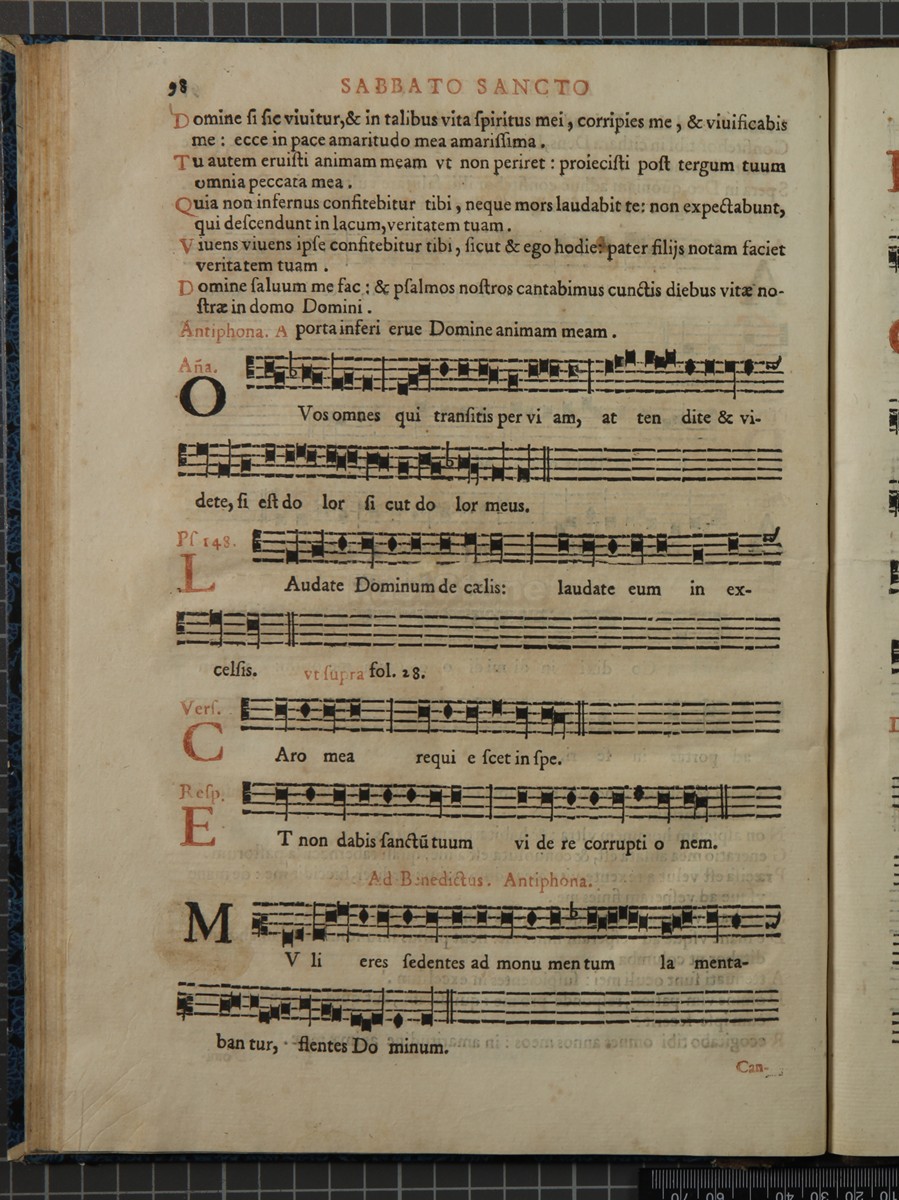 98 SABBATO SANCTO
Domine ſi ſic viuitur,& in talibus vita ſpiritus mei, corripies me, & viuificabis
me : ecce in pace amaritudo mea amariſſima.
Tu autem eruiſti animam meam vt non periret : proieciſti poſt tergum tuum
omnia peccata mea.
Quia non infernus confitebitur tibi, neque mors laudabit te: non expectabunt,
qui deſcendunt in lacum, veritatem tuam.
Viuens viuens ipſe confitebitur tibi, ſicut & ego hodie: pater filijs notam faciet
veritatem tuam.
Domine ſaluum me fac : & pſalmos noſtros cantabimus cunctis diebus vitæ no-
ſtræ in domo Domini.
Antiphona. A porta inferi erue Domine animam meam.
Añа.
O Vos omnes qui tranſitis per vi am, at ten dite & vi-
dete, ſi eſt do lor ſi cut do lor meus.
Pſ 148.
LAudate Dominum de cælis: laudate eum in ex-
celſis. vt ſupra fol. 28.
Verſ.
CAro mea requi e ſcet in ſpe.
Reſp.
ET non dabis ſanctū tuum vi de re corrupti o nem.
Ad Benedictus. Antiphona.
MV li eres ſedentes ad monu men tum la menta-
ban tur, flentes Do minum.
Can-
70 60 50 40 30 20 10